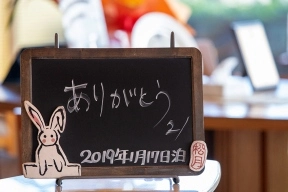 ありがとう
2019年1月17日泊